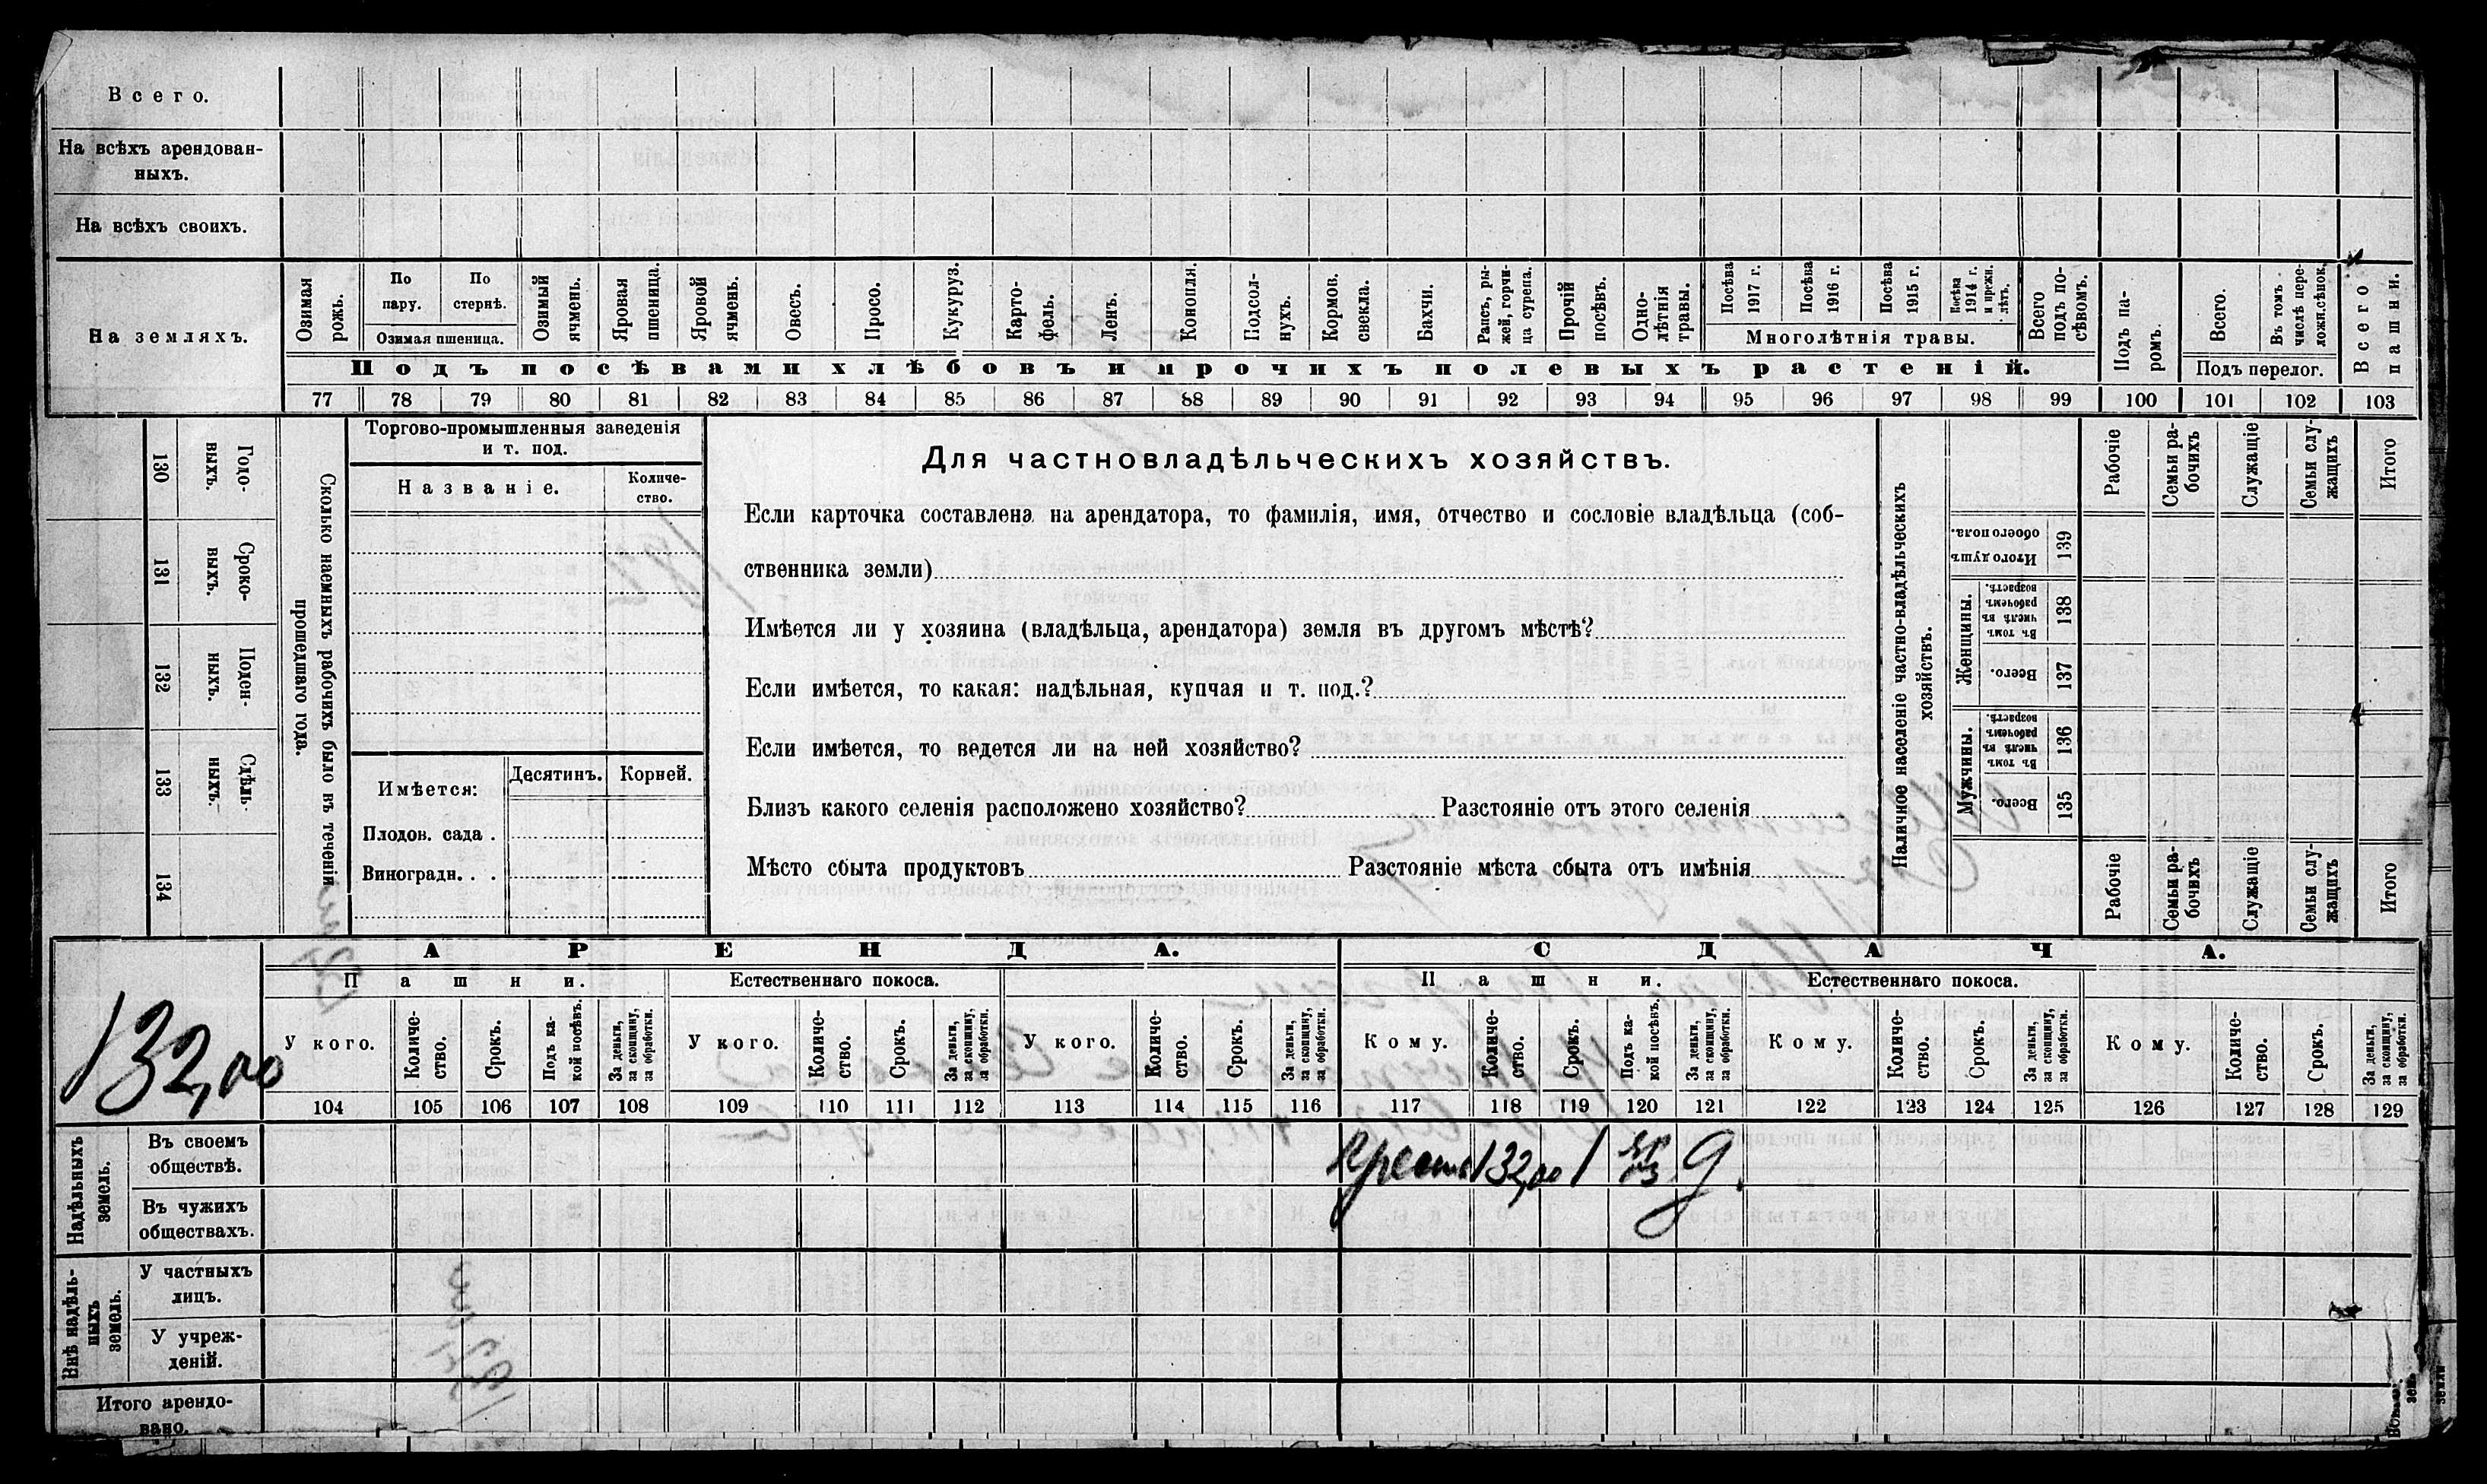 Всего.
На всѣхъ арендован-
ныхъ.
На всѣхъ своихъ.
На земляхъ.
Озимая
рожь.
По
пару.
По
стернѣ.
Озимая пшеница.
Озимый
ячмень.
Яровая
пшеница.
Яровой
ячмень.
Овесъ.
Просо.
Кукуруз.
Карто-
фель.
Ленъ.
Конопля.
Подсол-
нухъ.
Кормов.
свекла.
Бахчи.
Рапсъ, ры-
жей, горчи-
ца сурепа.
Прочій
посѣвъ.
Одно-
лѣтнія
травы.
Посѣва
1917 г.
Посѣва
1916 г.
Посѣва
1915 г.
Посѣва
1914 г.
и прежн.
лѣтъ.
Многолѣтнія травы.
Всего
подъ по-
сѣвомъ.
Подъ па-
ромъ.
Всего.
Въ томъ
числѣ пере-
ложн.сѣнок.
Подъ перелог.
Всего
пашни.
Подъ посѣвами хлѣбовъ и прочихъ полевыхъ растеній.
77 78 79 80 81 82 83 84 85 86 87 88 89 90 91 92 93 94 95 96 97 98 99 100 101 102 103
130
Годо-
выхъ.
131
Сроко-
выхъ.
132
Поден-
ныхъ.
133
Сдѣль-
ныхъ.
134
Сколько наемныхъ рабочихъ было въ теченіи
прошедшаго года.
Торгово-промышленныя заведенія
и т. под.
Названіе.
Количе-
ство.
Имѣется:
Десятинъ.
Корней.
Плодов. сада .
Виноградн. . .
Для частновладѣльческихъ хозяйствъ.
Если карточка составлена на арендатора, то фамилія, имя, отчество и сословіе владѣльца (соб-
ственника земли)
Имѣется ли у хозяина (владѣльца, арендатора) земля въ другомъ мѣстѣ?
Если имѣется, то какая: надѣльная, купчая и т. под.?
Если имѣется, то ведется ли на ней хозяйство?
Близъ какого селенія расположено хозяйство? Разстояніе отъ этого селенія
Мѣсто сбыта продуктовъ Разстояніе мѣста сбыта отъ имѣнія
Наличное населеніе частно-владѣльческихъ
хозяйствъ.
Рабочіе
Семьи ра-
бочихъ
Служащіе
Семьи слу-
жащихъ
Итого
Итого душъ
обоего пола.
139
Женщины.
Въ томъ
числѣ въ
рабочемъ
возрастѣ.
138
Всего.
137
Мужчины.
Въ томъ
числѣ въ
рабочемъ
возрастѣ.
136
Всего.
135
Рабочіе
Семьи ра-
бочихъ
Служащіе
Семьи слу-
жащихъ
Итого
132,00
АРЕНДА.
СДАЧА.
Пашни.
Естественнаго покоса.
Пашни.
Естественнаго покоса.
У кого.
Количе-
ство.
Срокъ.
Подъ ка-
кой посѣвъ.
За деньги,
за скопщину,
за обработки.
У кого.
Количе-
ство.
Срокъ.
За деньги,
за скопщину,
за обработки.
У кого.
Количе-
ство.
Срокъ.
За деньги,
за скопщину,
за обработки.
Кому.
Количе-
ство.
Срокъ.
Подъ ка-
кой посѣвъ.
За деньги,
за скопщину,
за обработки.
Кому.
Количе-
ство.
Срокъ.
За деньги,
за скопщину,
за обработки.
Кому.
Количе-
ство.
Срокъ.
За деньги,
за скопщину,
за обработки.
104 105 106 107 108 109 110 111 112 113 114 115 116 117 118 119 120 121 122 123 124 125 126 127 128 129
Надѣльныхъ
земель.
Въ своемъ
обществѣ.
132,00 1
Въ чужихъ
обществахъ.
Внѣ надѣль-
ныхъ
земель.
У частныхъ
лицъ.
У учреж-
деній.
Итого арендо-
вано.